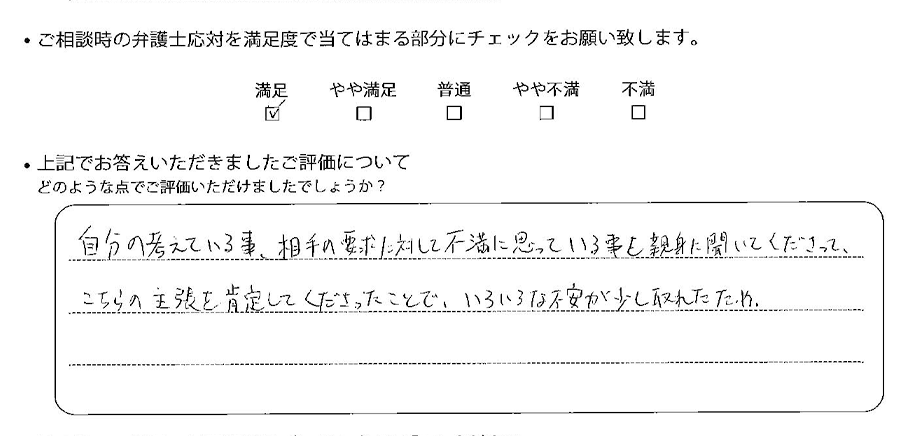 ・ご相談時の弁護士応対を満足度で当てはまる部分にチェックをお願い致します。
満足 やや満足 普通 やや不満 不満
☑ ☐ ☐ ☐ ☐
・上記でお答えいただきましたご評価について
どのような点でご評価いただけましたでしょうか？
自分の考えている事、相手の要求に対して不満に思っている事を親身に聞いてくださって、
こちらの主張を肯定してくださったことで、いろいろな不安が少し取れたため。